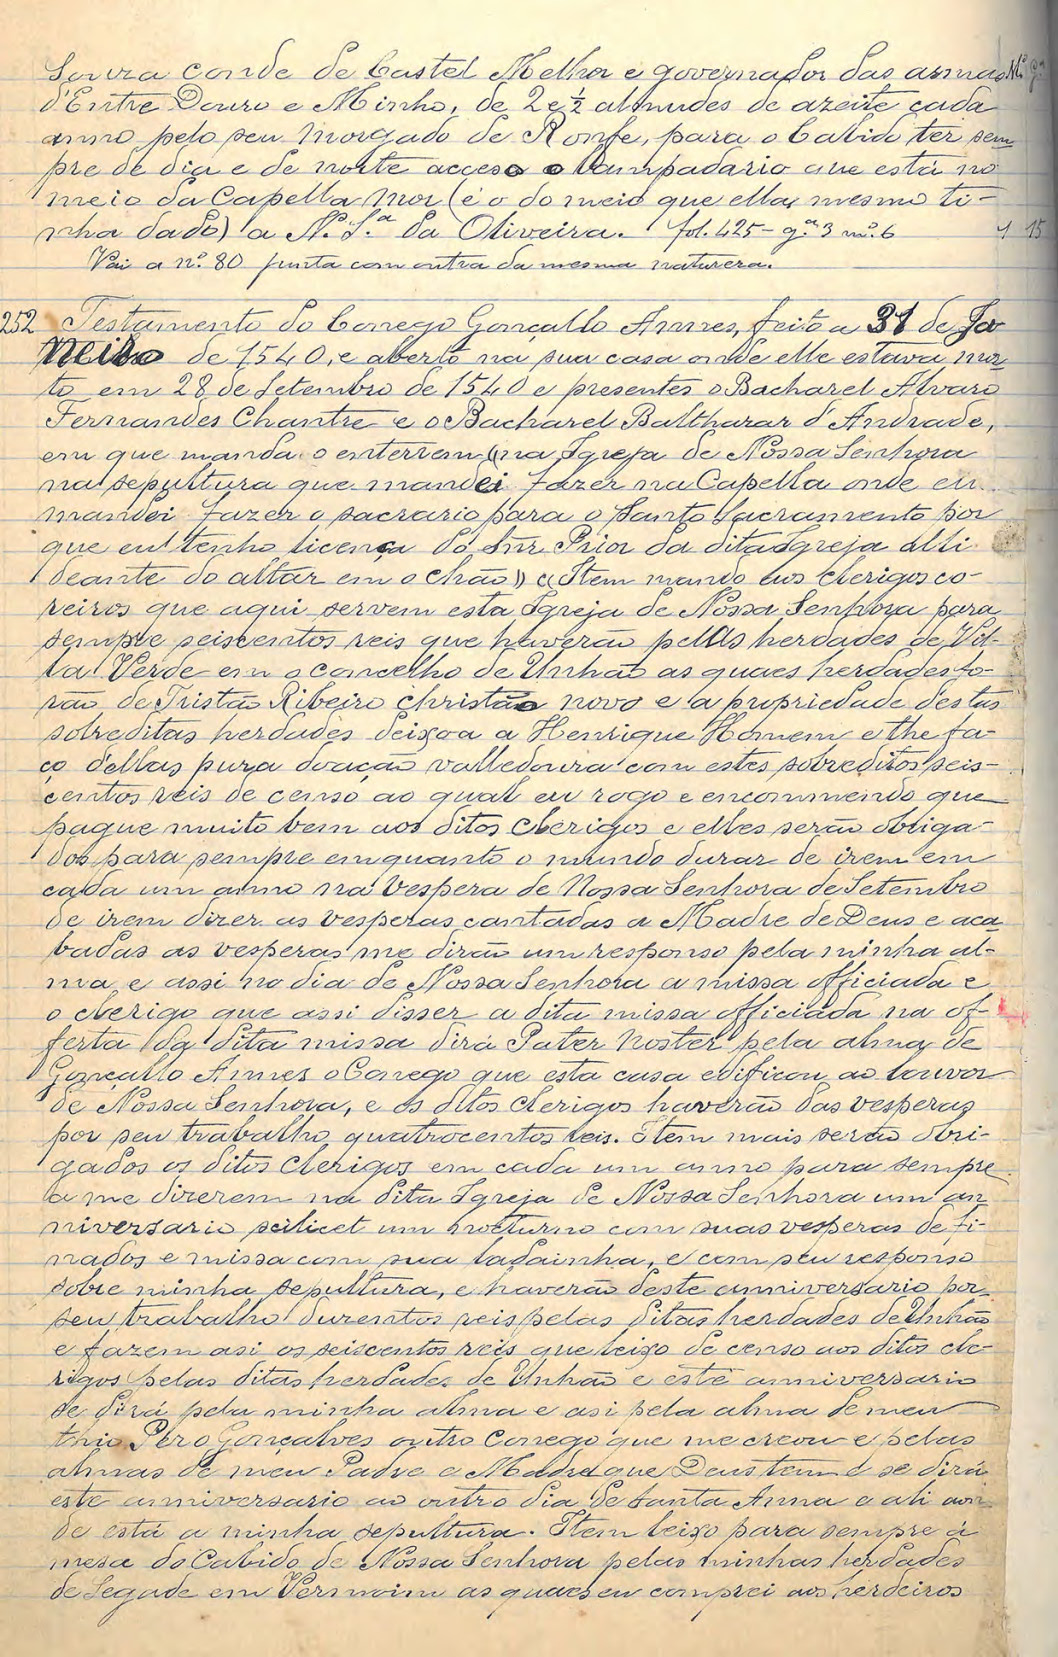 Souza conde de Castel Melhor e governador das armas
d'Entre Douro e Minho, de 2 e ½ almudes de azeite cada
anno pelo seu Morgado de Ronfe, para o Cabido ter sem-
pre de dia e de norte acceso o lampadario que está no
meio da Capella Mor (é o do meio que ella mesmo ti-
nha dado) a N. S.ª da Oliveira. fol. 425 - g.ª 3 m.º 6
Vai a n.º 80 junta com outra da mesma natureza.
252 Testamento do Conego Gonçallo Annes, feito a 31 de Ja
neiro de 1540, e aberto na sua casa onde elle estava mor-
to em 28 de Setembro de 1540 e presentes o Bacharel Alvaro
Fernandes Chantre e o Bacharel Balthazar d'Andrade,
em que manda o enterrem «na Igreja de Nossa Senhora
na sepultura que mandei fazer na Capella onde eu
mandei fazer o sacrario para o Santo Sacramento por
que eu tenho licença do Snr Prior da dita Igreja alli
deante do altar em o chão» «Item mando aos clerigos co-
reiros que aqui servem esta Igreja de Nossa Senhora para
sempre seiscentos reis que haverão pelas herdades de Vil-
la Verde em o concelho de Unhão as quaes herdades fo-
rão de Tristão Ribeiro christão novo e a propriedade destas
sobreditas herdades deixoa a Henrique Homem e lhe fa-
ço dellas pura doação valledoura com estes sobreditos seis-
centos reis de censo ao qual eu rogo e encommendo que
pague muito bem aos ditos clerigos e elles serão obriga-
dos para sempre emquanto o mundo durar de irem em
cada um anno na vespera de Nossa Senhora de Setembro
de irem dizer as vesperas cantadas a Madre de Deus e aca-
badas as vesperas me dirão um responso pela minha al-
ma, e assi no dia de Nossa Senhora a missa officiada e
o clerigo que assi disser a dita missa officiada na of-
ferta da dita missa dirá Pater Noster pela alma de
Gonçallo Annes o Conego que esta casa edificou ao louvor
de Nossa Senhora, e os ditos clerigos haverão das vesperas
por seu trabalho quatrocentos reis. Item mais serão obri-
gados os ditos clerigos em cada um anno para sempre
a me dizerem na dita Igreja de Nossa Senhora um an
niversario scilicet um nocturno com suas vesperas de fi-
nados e missa com sua ladainha, e com seu responso
sobre minha sepultura, e haverão deste anniversario por
seu trabalho duzentos reis pelas ditas herdades de Unhão
e fazem asi os seiscentos reis que leixo de censo aos ditos cle-
rigos pelas ditas herdades de Unhão e este anniversario
se dirá pela minha alma e asi pela alma de meu
thio Pero Gonçalves outro Conego que me creou e pelas
almas de meu Padre e Madre que Deus tem e se dirá
este anniversario ao outro dia de Santa Anna e ali aon-
de está a minha sepultura. Item leixo para sempre á
mesa do Cabido de Nossa Senhora pelas minhas herdades
de Segade em Vermoim as quaes eu comprei aos herdeiros